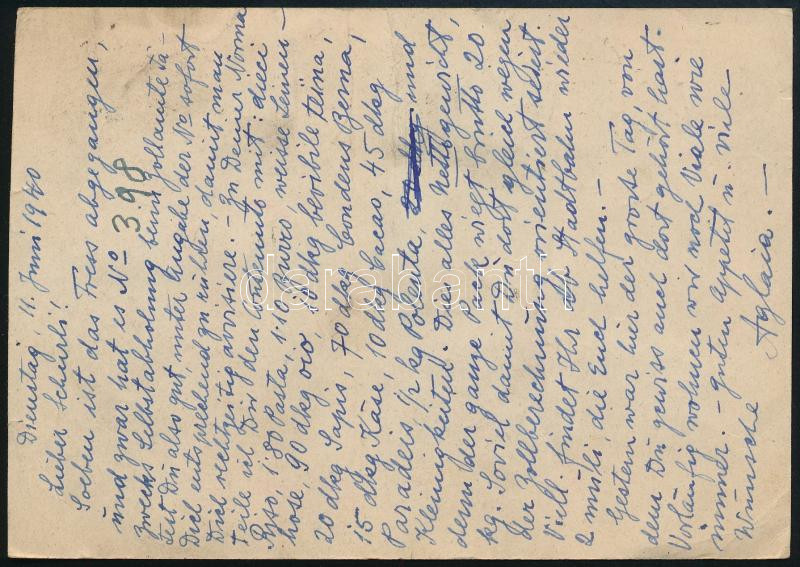 Dienstag, 11. Juni 1940
Lieber Schurli!
Soeben ist das Fress abgegangen,
und zwar hat es No 398
zwecks Selbstabholung beim Zollamte. Tä-
test Du also gut, unter Angabe der No sofort
Dich entsprechend zu rühren, damit man
Dich rechtzeitig avisiere. – Zu Deiner Norma
teile ich Dir den Contenuto mit: dieci
Riso, 1.80 Pasta, 1.10 Burro, weisse Leinen-
hose, 90 dkg olio, 90 dkg bevibile teina,
20 dkg Sapis, 70 dkg Condens Berna,
15 dkg Käse, 10 dkg Cacao, 45 dkg
Paradeis 1/2 kg Polenta, und
Kleinigkeiten. Dies alles Nettogewicht,
denn der ganze Pack wiegt brutto 20
kg. Soviel damit Du dort gleich wegen
der Zollberechnung orientiert seiest.
Viell. findet Ihr ab Stadtbahn wieder
2 muli, die Euch helfen. –
Gestern war hier der grosse Tag, von
dem Du gewiss auch dort gehört hast.
Vorläufig wohnen wir noch Viale wie
immer. – guten Appetit u. viele
Wünsche Aglaia. –
darabanth